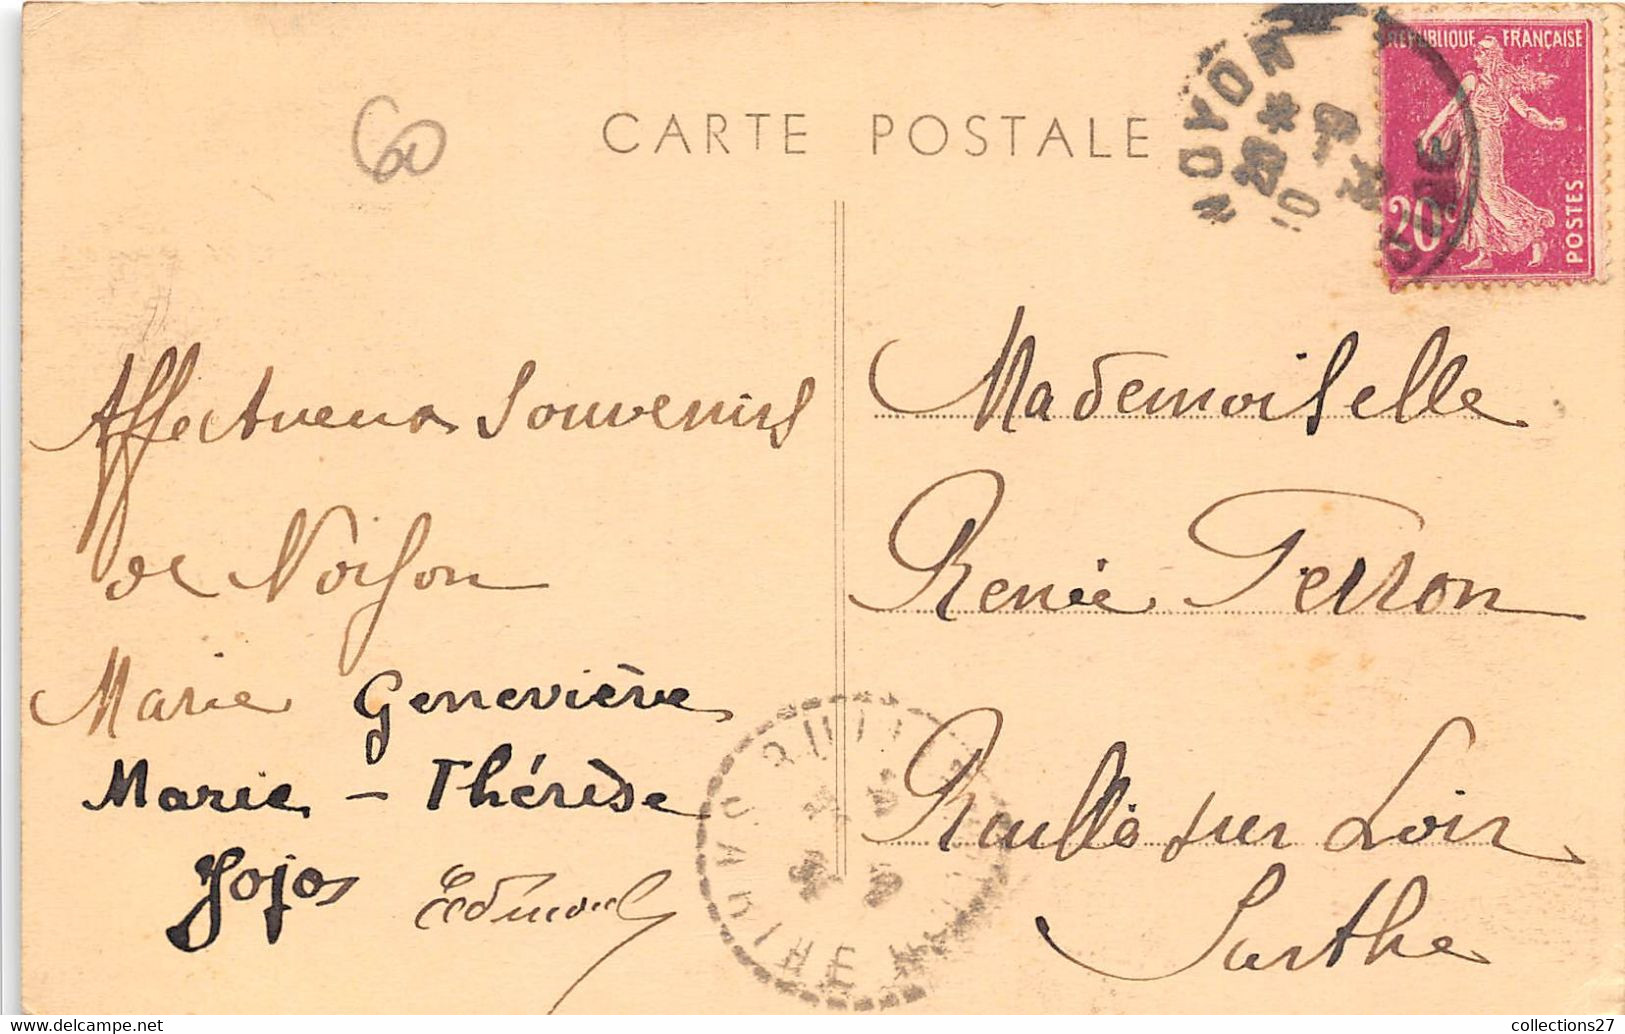 60
CARTE POSTALE
RÉPUBLIQUE FRANÇAISE
20c
POSTES
NOYON
20 *
10 - 9
OISE
Affectueux Souvenirs
de Noison
Marie Geneviève
Marie - Thérèse
Jojo Edmond
Mademoiselle
Renée Ferron
Ruillé sur Loir
Sarthe
SARTHE
www.delcampe.net
collections27